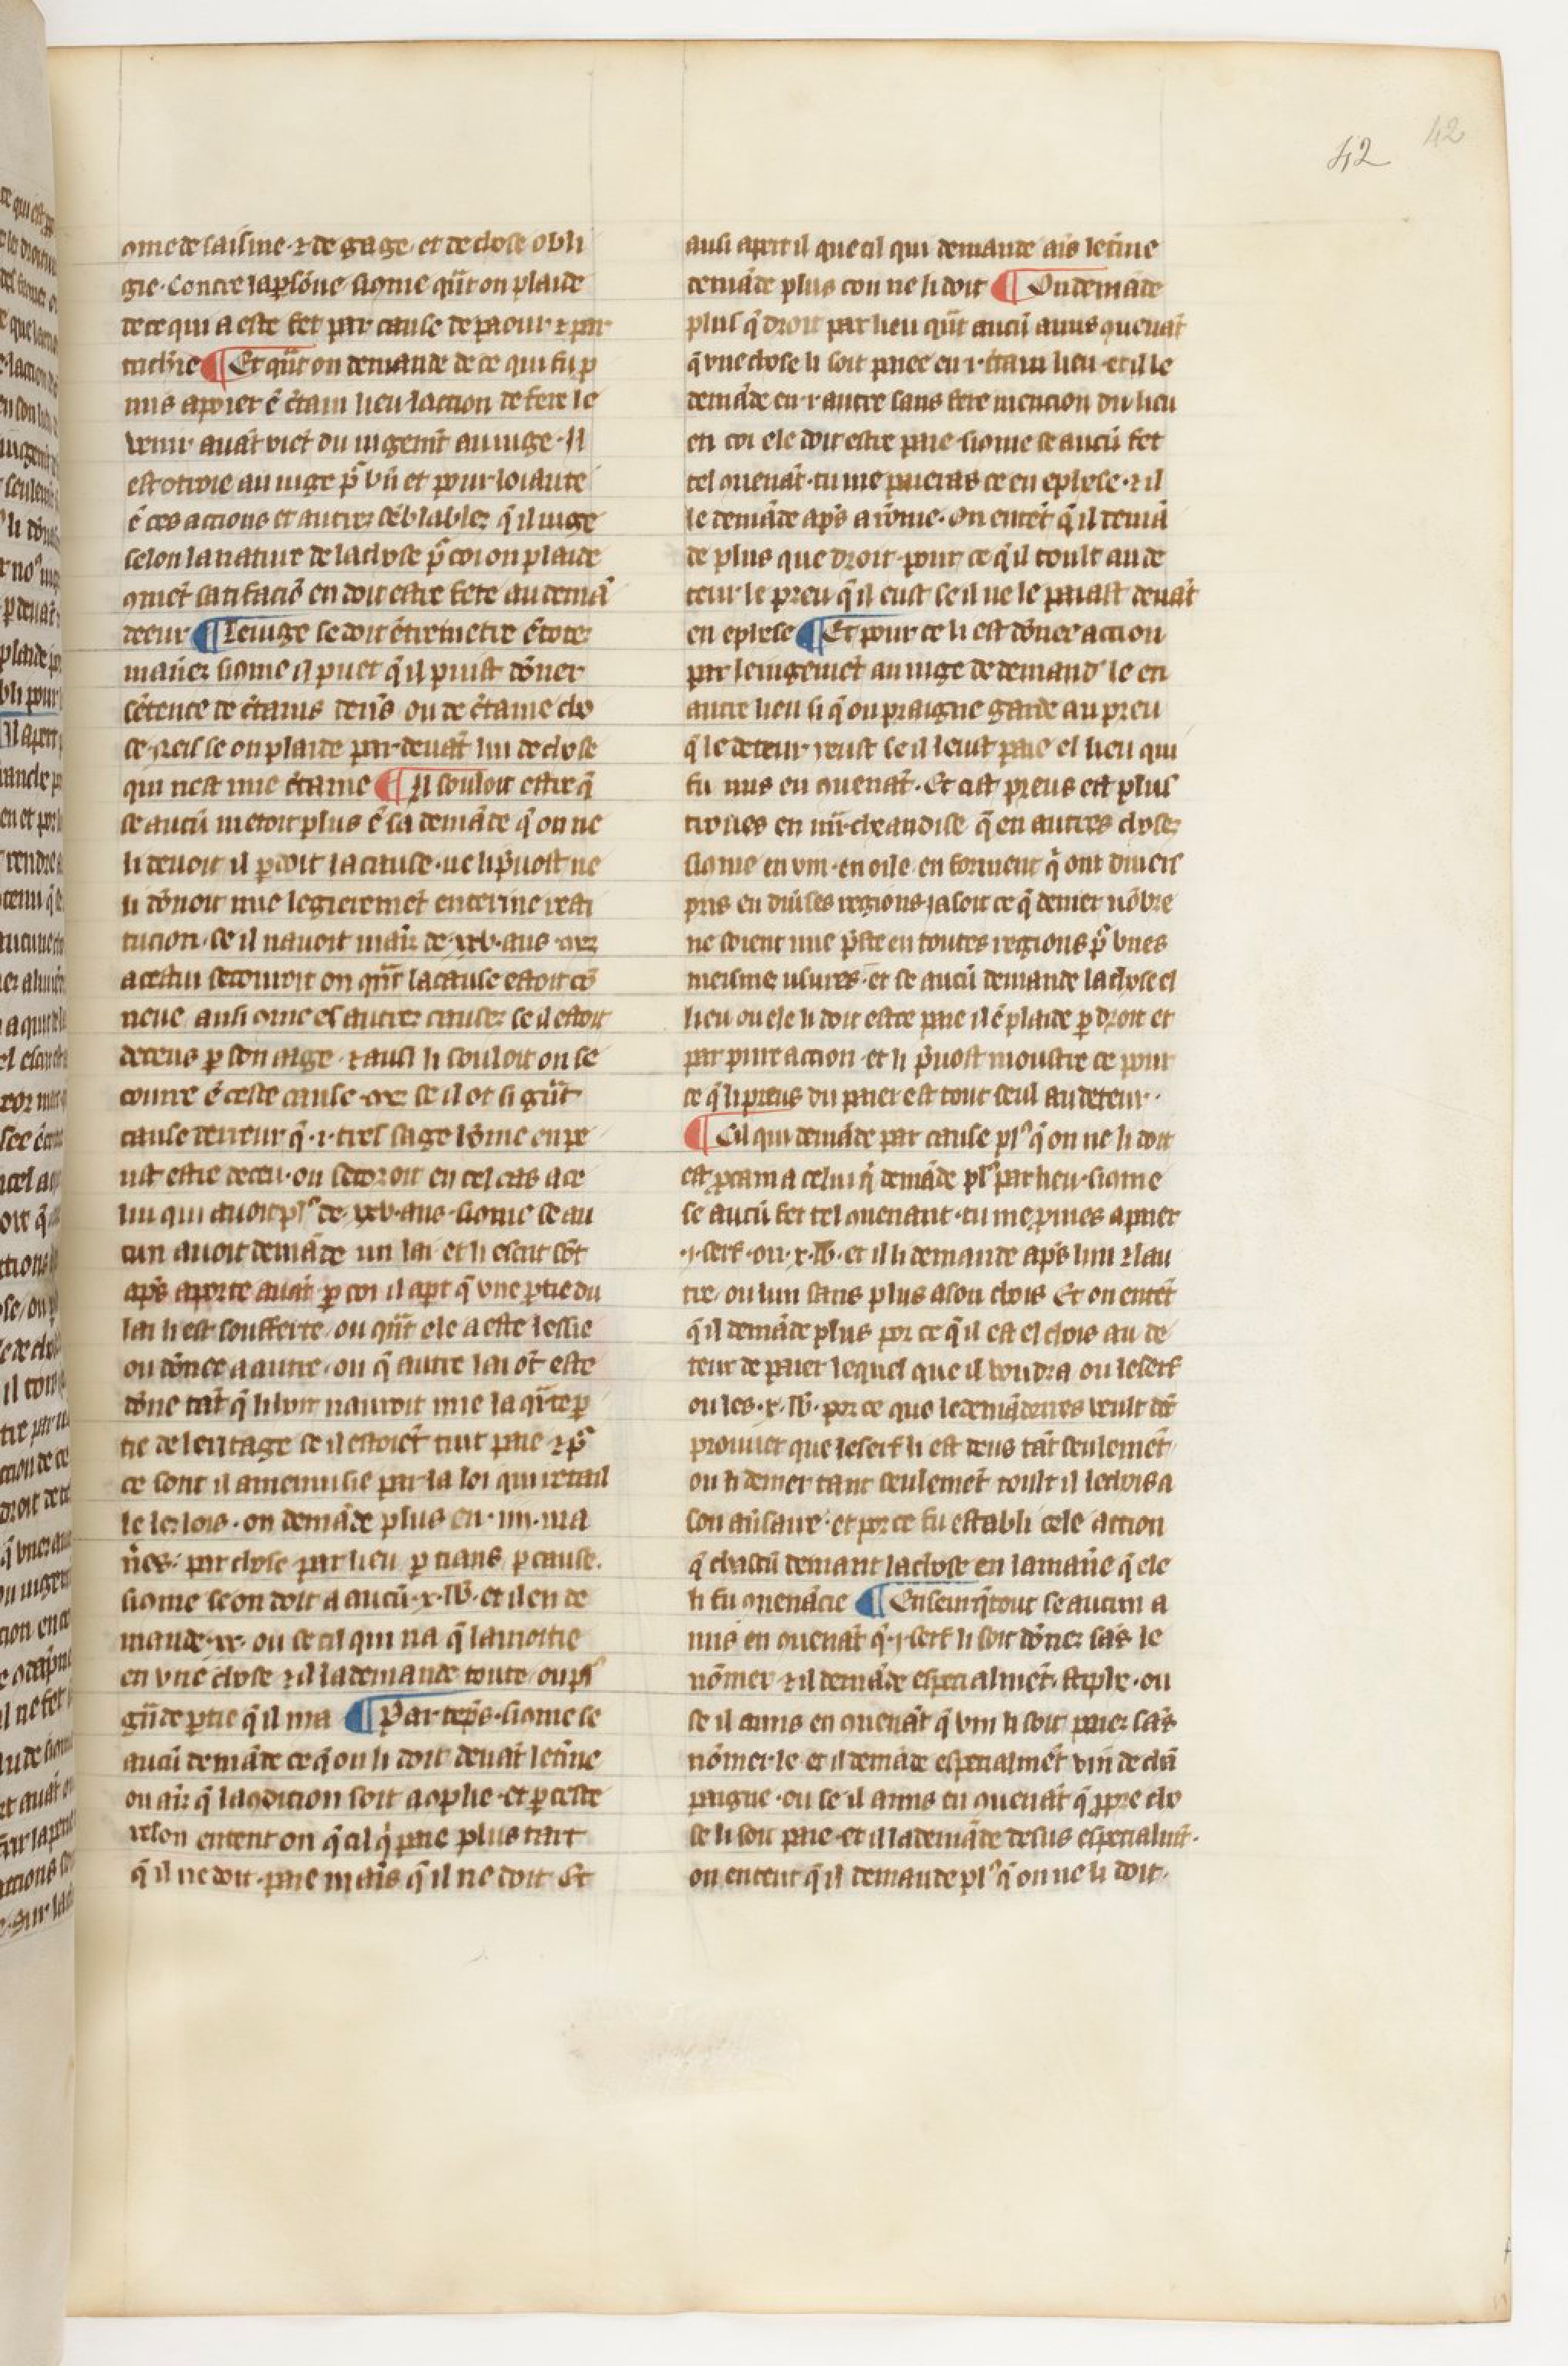 42
42
ꝯme de saisine ⁊ de gage et de chose obli
gie contre la ꝑsōne siꝯme qūt on plaide
de ce qui a este fet par cause de paour ⁊ par
¶ Et qūt on demande de ce qui fu ꝓ
mis a paier ē c̄tain lieu laction de fere le
venir auāt
est otroie au iuge pͬ bn̄ et pour loiaute
ē ces actions et autrez sēblablez q̄ il iuge
selon la nature de la chose pͬ coi on plaide
ꝯmēt satifaciō en doit estre fete au demā
deeur ¶ Le iuge se doit ētremetre ē totez
manieꝛ siꝯme il puet q̄ il puist dōner
sētence de c̄tains ou de c̄taine cho
se neis se on plaide par deuāt lui de chose
qui nest mie c̄taine ¶ Il souloit estre q̄
se aucū metoit plus ē sa demāde q̄ on ne
li deuoit il ꝑdoit la cause ne li p̄uost ne
li dōnoit mie legieremēt enterine resti
tucion se il nauoit de xxv ans mez
a cestui secouroit on qūt la cause estoit cō
neue ausi ꝯme es autrez causez se il estoit
deceus ꝑ son aage ⁊ ausi li souloit on se
courre ē ceste cause se il ot si gn̄t
cause derreur q̄ ·i· tres sage hōme en pe
ust estre deceu on secoroit en cel cas a ce
lui qui auoit plꝰ de xxv ans siꝯme se au
cun auoit demāde un lai et li escrit sōt
ap̄s aporte auāt ꝑ coi il apt q̄ vne ꝑtie du
lai li est soufferte ou qūt ele a este lessie
ou dōnee a autre ou q̄ autre lai ot este
dōne tāt q̄ li hoir nauroit mie la q̄rte ꝑ
tie de leritage se il estoiēt tuit paie ⁊ pͬ
ce sont il amenuisie par la loi qui retail
le lez lois on demāde plus en iiii ma
n̄es par chose par lieu ꝑ tians ꝑ cause
siꝯme se on doit a aucū x lb et il en de
mande xx ou se cil qui na q̄ la moitie
en vne chose ⁊ il la demande toute ou plꝰ
gn̄de ꝑtie q̄ il nia ¶ Par tēps siꝯme se
aucū demāde ce q̄ on li doit deuāt le t̄me
ou aīz q̄ la ꝯdicion soit aꝯplie et ꝑ ceste
reson entent on q̄ cil q̄ paie plus tart
q̄ il ne doit paie mains q̄ il ne doit Et
ausi apert il que cil qui demande ais le t̄me
demāde plus con ne li doit ¶ On demāde
plus q̄ droit par lieu qūt aucū a mis ꝯuenāt
q̄ vne chose li soit paiee en ·i· c̄tain lieu et il le
demāde en ·i· autre sans fere mencion du lieu
en coi ele doit estre paie siꝯme se aucū fet
tel ꝯuenāt tu me paieras ce en ephese ⁊ il
le demāde ap̄s a rōme on entēt q̄ il demā
de plus que droit pour ce q̄ il toult au de
teur le preu q̄ il eust se il ne le paiast deuāt
en ephese ¶ Et pour ce li est dōnee action
par le iugemēt au iuge de demander le en
autre lieu si q̄ on praigne garde au preu
q̄ le deteur reust se il leust paie el lieu qui
fu mis en ꝯuenāt Et cist preus est plus
troues en m̄cheandise q̄ en autres chosez
siꝯme en vin en oile en forment q̄ ont diuers
pris en diu̾ses regions ia soit ce q̄ denier nōbre
ne soient mie p̄ste en toutes regions pͬ vnes
meismes usures et se aucū demande la chose el
lieu ou ele li doit estre paie il ē plaide ꝑ droit et
par pure action et li p̄uost moustre ce pour
ce q̄ li preus du paier est tout seul au deteur
¶ Cil qui demāde par cause plꝰ q̄ on ne li doit
est ꝓcain a celui q̄ demāde plꝰ par lieu siꝯme
se aucū fet tel ꝯuenant tu me ꝓmes a paier
·i· serf ou x lb et il li demande ap̄s lun ⁊ lau
tre ou lun sans plus a son chois Et on entēt
q̄ il demāde plus por ce q̄ il est el chois au de
teur de paier lequel que il voudra ou le serf
ou les x lb por ce que le demāderres veult dōt
prouuer que le serf li est deus tāt seulemēt
ou li denier tant seulemēt toult il le chois a
son au̾saire et por ce fu establi cele action
q̄ chascū demant la chose en la mane q̄ ele
li fu ꝯuenācie ¶ Enseurq̄tout se aucun a
mis en ꝯuenāt q̄ ·i· serf li soit dōnez sās le
nōmer ⁊ il demāde especialmēt steple ou
se il a mis en ꝯuenāt q̄ vin li soit paiez sās
nōmer le et il demāde especialmēt vin de chā
paigne ou se il a mis en ꝯuenāt q̄ pꝑre cho
se li soit paie et il la demāde desus especialmēt
on entent q̄ il demande plꝰ q̄ on ne li doit